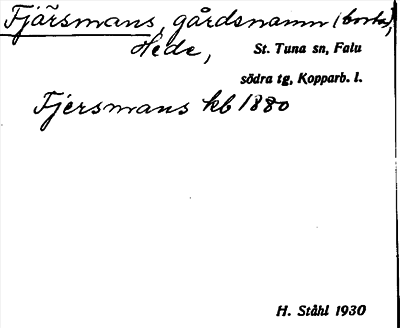 Fjärsmans, gårdsnamn (borta),
Hede, St. Tuna sn, Falu
södra tg, Kopparb. l.
Fjersmans kb 1880
H. Ståhl 1930